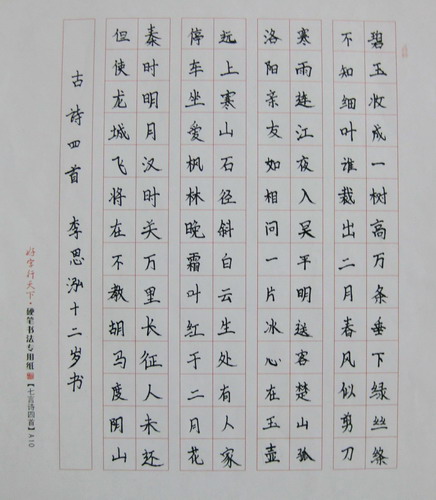 碧玉妆成一树高万条垂下绿丝绦
不知细叶谁裁出二月春风似剪刀
寒雨连江夜入吴平明送客楚山孤
洛阳亲友如相问一片冰心在玉壶
远上寒山石径斜白云生处有人家
停车坐爱枫林晚霜叶红于二月花
秦时明月汉时关万里长征人未还
但使龙城飞将在不教胡马度阴山
古诗四首 李思泓十二岁书
好字行天下·硬笔书法专用纸【七言诗四首】A10